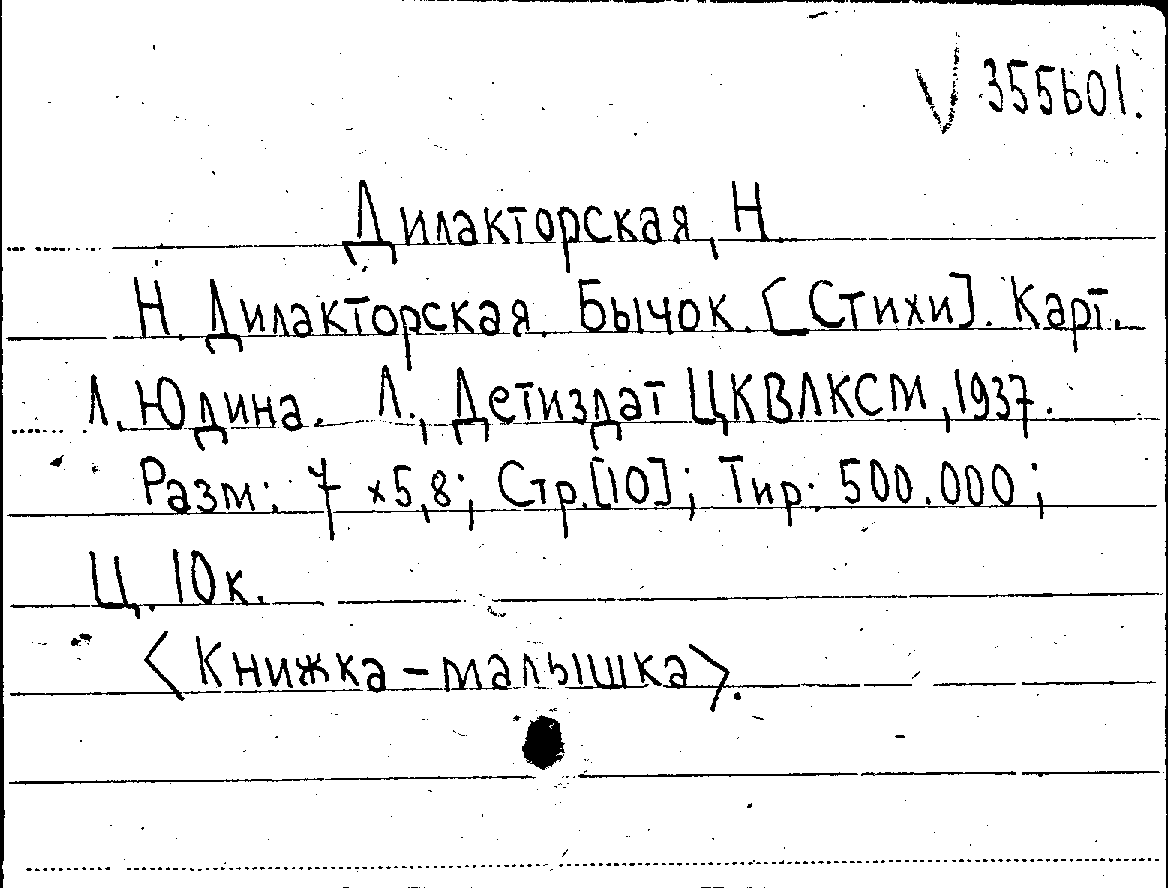 V 355601.
Дилакторская, Н.
Н. Дилакторская. Бычок. [Стихи]. Карт.
Л. Юдина. Л., Детиздат ЦКВЛКСМ, 1937.
Разм: 7 х 5,8; Стр. [10]; Тир: 500.000;
Ц. 10к.
<Книжка-малышка>.